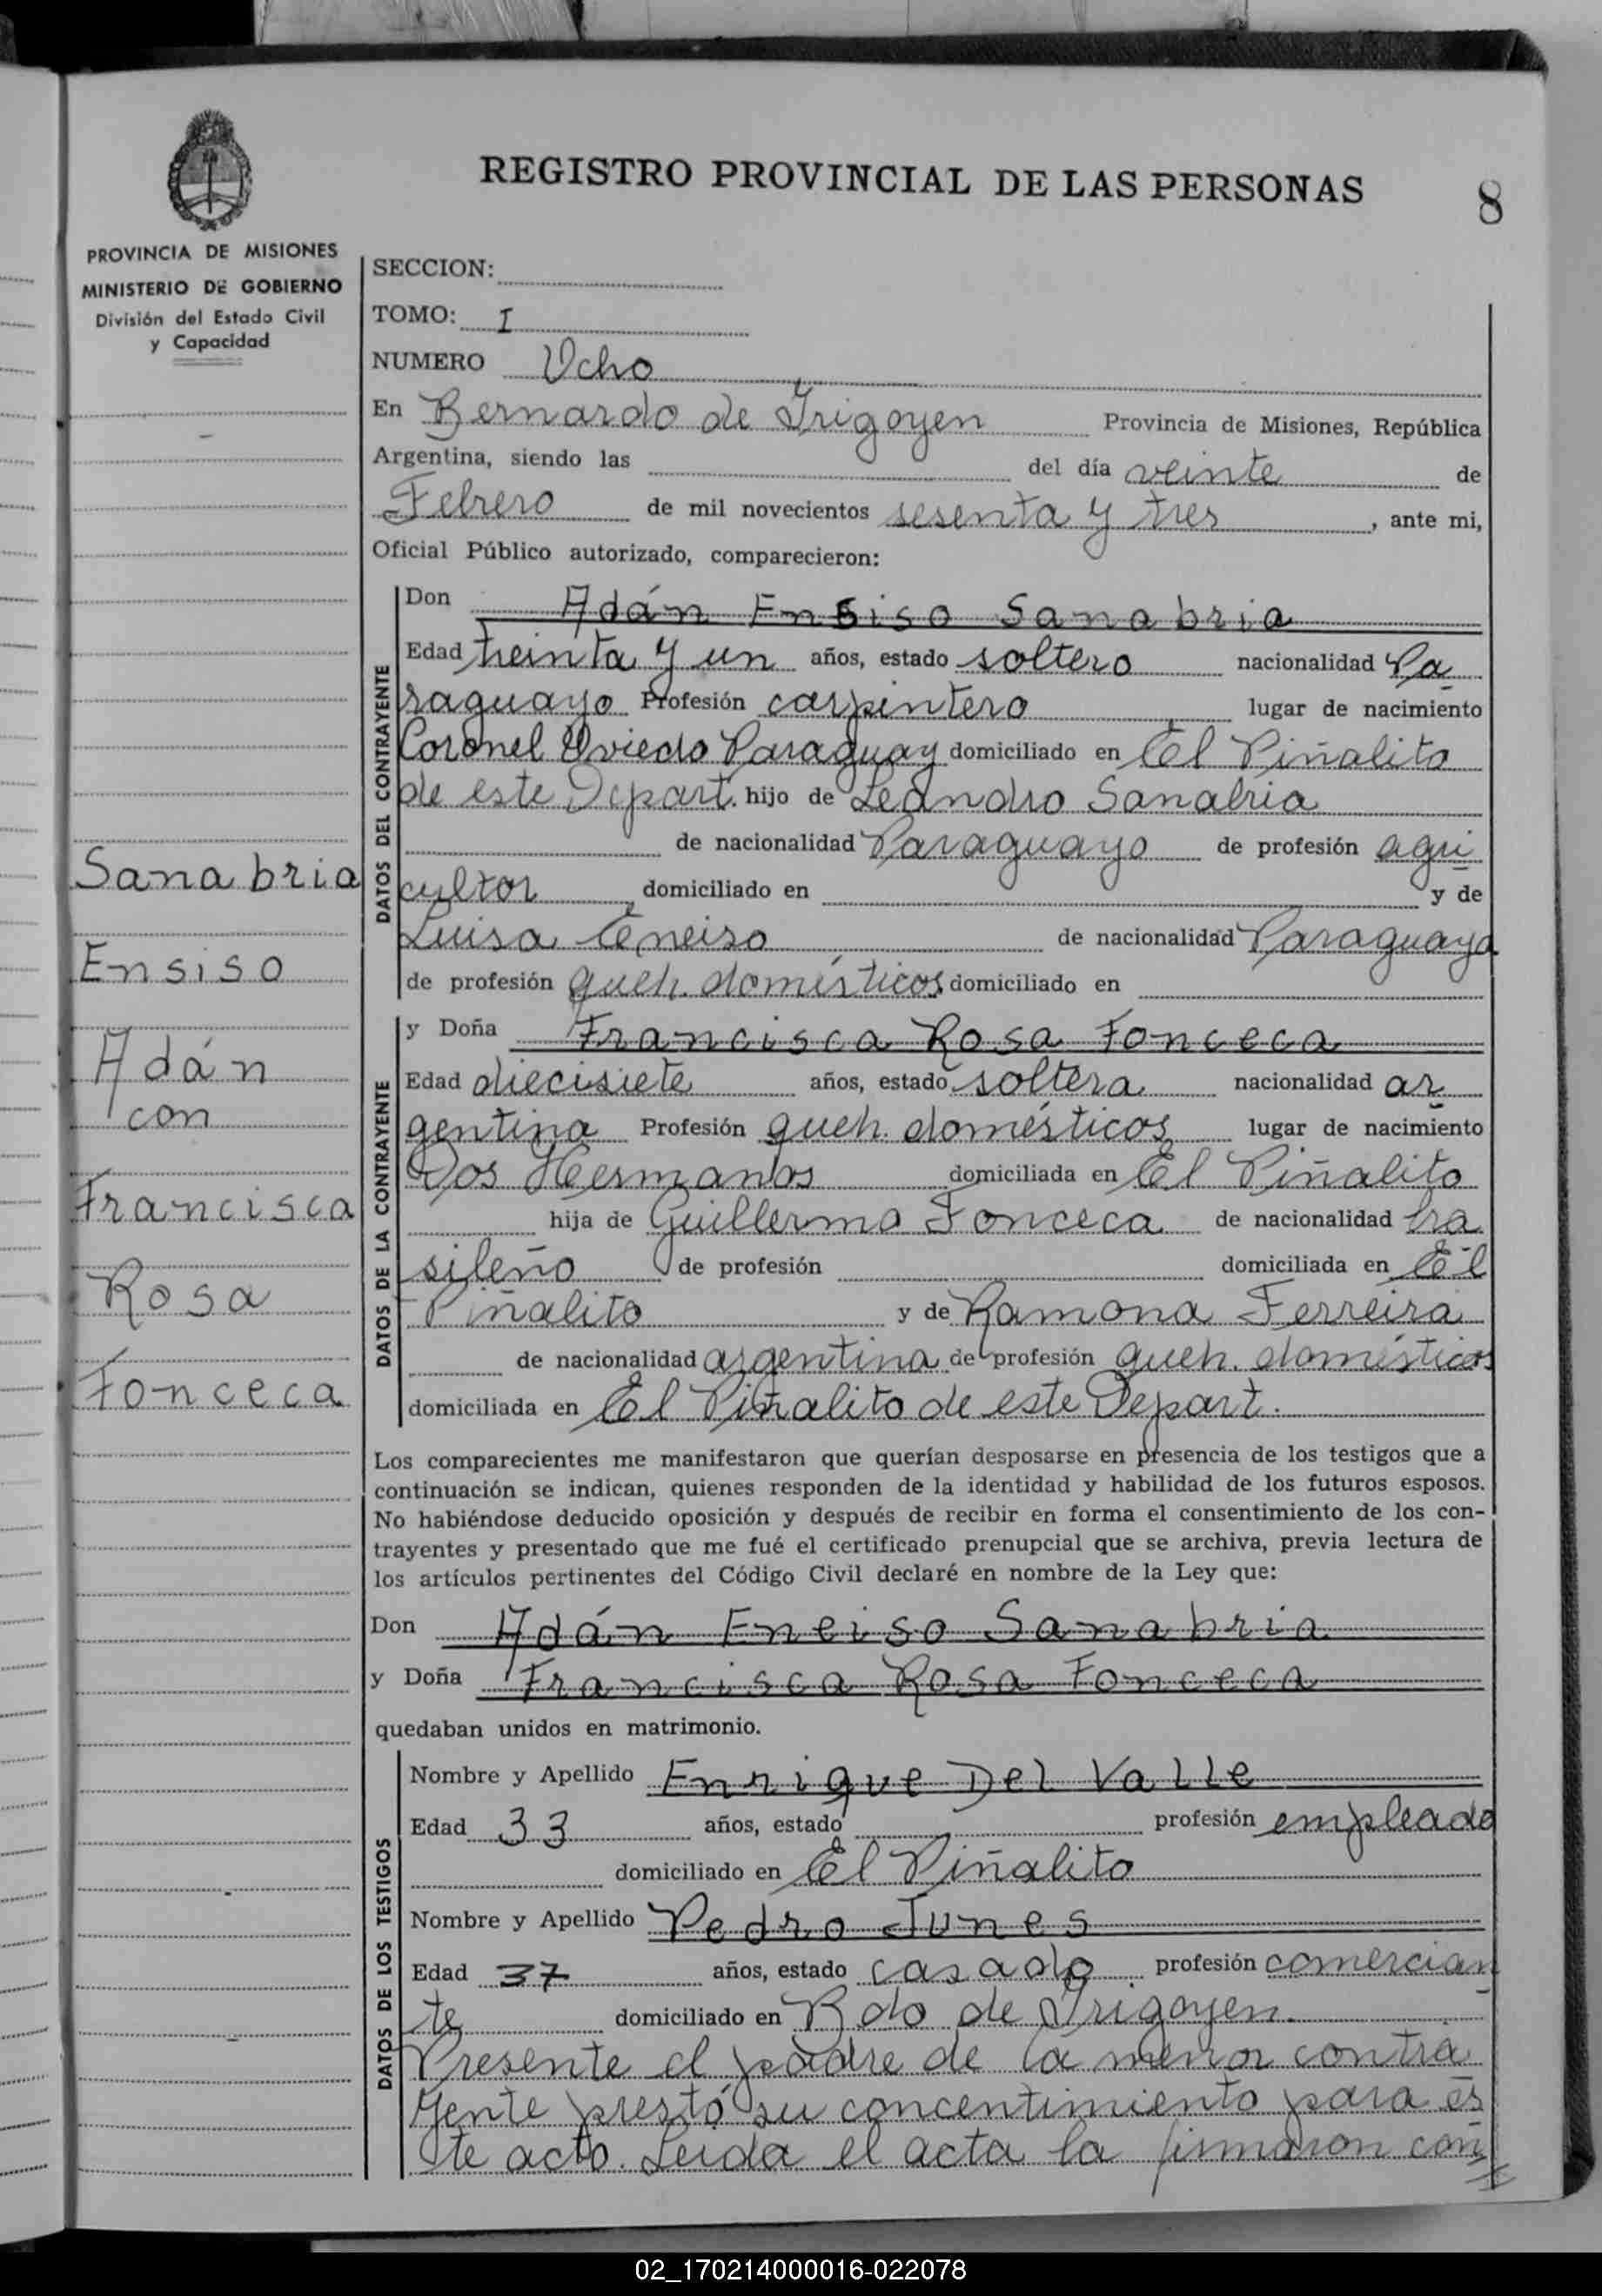 REGISTRO PROVINCIAL DE LAS PERSONAS
8
PROVINCIA DE MISIONES
MINISTERIO DE GOBIERNO
División del Estado Civil
y Capacidad
SECCION:
TOMO: I
NUMERO Ocho
En Bernardo de Irigoyen Provincia de Misiones, República
Argentina, siendo las del día veinte de
Febrero de mil novecientos sesenta y tres, ante mi,
Oficial Público autorizado, comparecieron:
DATOS DEL CONTRAYENTE
Don Adán Ensiso Sanabria
Edad treinta y un años, estado soltero nacionalidad Pa
raguayo Profesión carpintero lugar de nacimiento
Coronel Oviedo Paraguay domiciliado en El Piñalito
de este Depart. hijo de Leandro Sanabria
de nacionalidad Paraguayo de profesión agri
cultor domiciliado en y de
Luisa Enciso de nacionalidad Paraguaya
de profesión queh. domésticos domiciliado en
Sanabria
Ensiso
Adán
con
Francisca
Rosa
Fonceca
DATOS DE LA CONTRAYENTE
y Doña Francisca Rosa Fonceca
Edad diecisiete años, estado soltera nacionalidad ar
gentina Profesión queh. domésticos lugar de nacimiento
Dos Hermanas domiciliada en El Piñalito
hija de Guillermo Fonceca de nacionalidad bra
sileño de profesión domiciliada en El
Piñalito y de Ramona Ferreira
de nacionalidad argentina de profesión queh. domésticos
domiciliada en El Piñalito de este Depart.
Los comparecientes me manifestaron que querían desposarse en presencia de los testigos que a
continuación se indican, quienes responden de la identidad y habilidad de los futuros esposos.
No habiéndose deducido oposición y después de recibir en forma el consentimiento de los con-
trayentes y presentado que me fué el certificado prenupcial que se archiva, previa lectura de
los artículos pertinentes del Código Civil declaré en nombre de la Ley que:
Don Adán Enciso Sanabria
y Doña Francisca Rosa Fonceca
quedaban unidos en matrimonio.
DATOS DE LOS TESTIGOS
Nombre y Apellido Enrique Del Valle
Edad 33 años, estado profesión empleado
domiciliado en El Piñalito
Nombre y Apellido Pedro Junes
Edad 37 años, estado casado profesión comercian
te domiciliado en Bdo de Irigoyen.
Presente el padre de la menor contra
yente prestó su concentimiento para es
te acto. Leida el acta la firmaron con
02_170214000016-022078